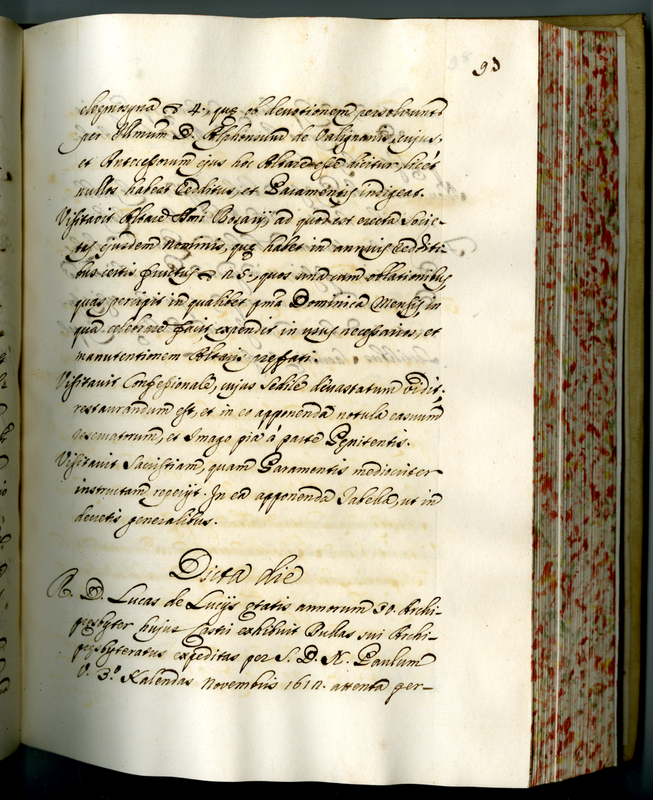 93
eleemosyna ▽ 4, quę ob devotionem persolvunt
per Illmum D. Alphonsum de Valignanis, cujus,
et Antecessorum ejus hoc Altare esse dicitur, licet
nullos habeat redditus, et Paramentis indigeat.
Visitavit Altare Smi Rosarij, ad quod est erecta Socie-
tas ejusdem nominis, quę habet in annuis reddíti-
bus certis fructus ▽ n. 5, quos una cum oblationibus
quas percipit in qualibet pma Dominica Mensis, in
qua celebrare facit expendit in usus necessarios, et
manutentionem Altaris prefati.
Visitavit Confessionale, cujus Sedile devastatum vidit,
restaurandum est, et in eo apponenda notula casuum
reservatorum, et Imago pia à parte Pęnitentis.
Visitavit Sacristiam, quam Paramentis mediocriter
instructam reperijt. In ea apponenda Tabella, ut in
decretis generalibus.
Dicta die
R. D. Lucas de Lucijs ętatis annorum 30. Archi-
presbyter hujus Castri exhibuit Bullas sui Archi-
presbyteratus expeditas per S. D. N. Paulum
V. 3.º Kalendas Novembris 1612. attenta per-